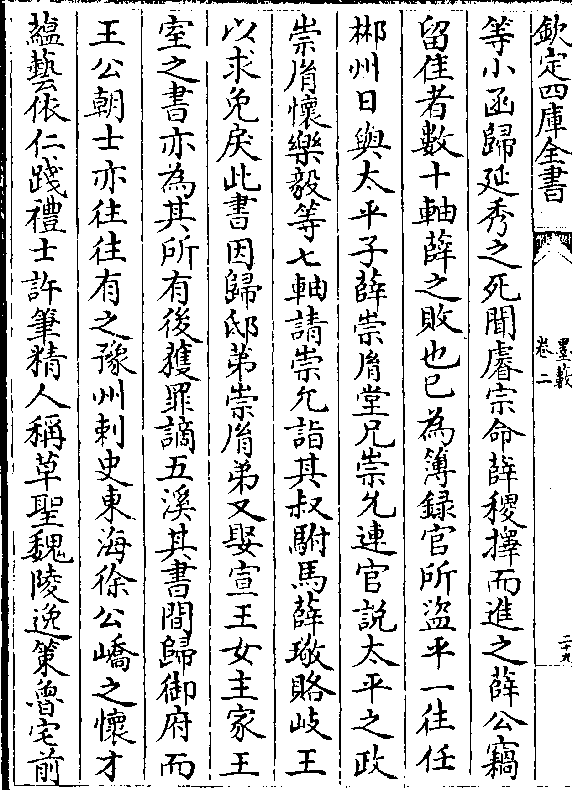 欽定四庫全書
墨藪
卷二
二十九
等小函歸延秀之死聞睿宗命薛稷擇而進之薛公竊
留佳者數十軸薛之敗也已為簿録官所盜平一徃任
郴州日與太平子薛崇𦙍堂兄崇允連官説太平之政
崇𦙍懷樂毅等七軸請崇允詣其叔駙馬薛璥賂岐王
以求免戾此書因歸邸弟崇𦙍弟又娶宣王女主家王
室之書亦為其所有後獲罪謫五溪其書間歸御府而
王公朝士亦往往有之豫州刺史東海徐公嶠之懷才
藴藝依仁踐禮士許筆精人稱草聖魏陵逸策魯宅前